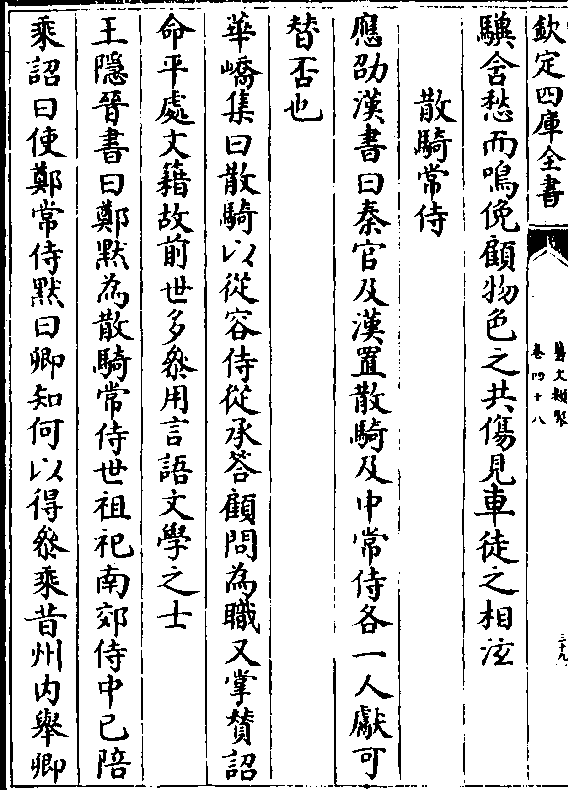 欽定四庫全書
藝文類聚
卷四十八
三十九
驥含愁而鳴俛顧物色之共傷見車徒之相泫
散騎常侍
應劭漢書曰秦官及漢置散騎及中常侍各一人獻可
替否也
華嶠集曰散騎以從容侍從承答顧問為職又掌贊詔
命平處文籍故前世多叅用言語文學之士
王隱晉書曰鄭黙為散騎常侍世祖祀南郊侍中已陪
乘詔曰使鄭常侍黙曰卿知何以得叅乘昔州内舉卿